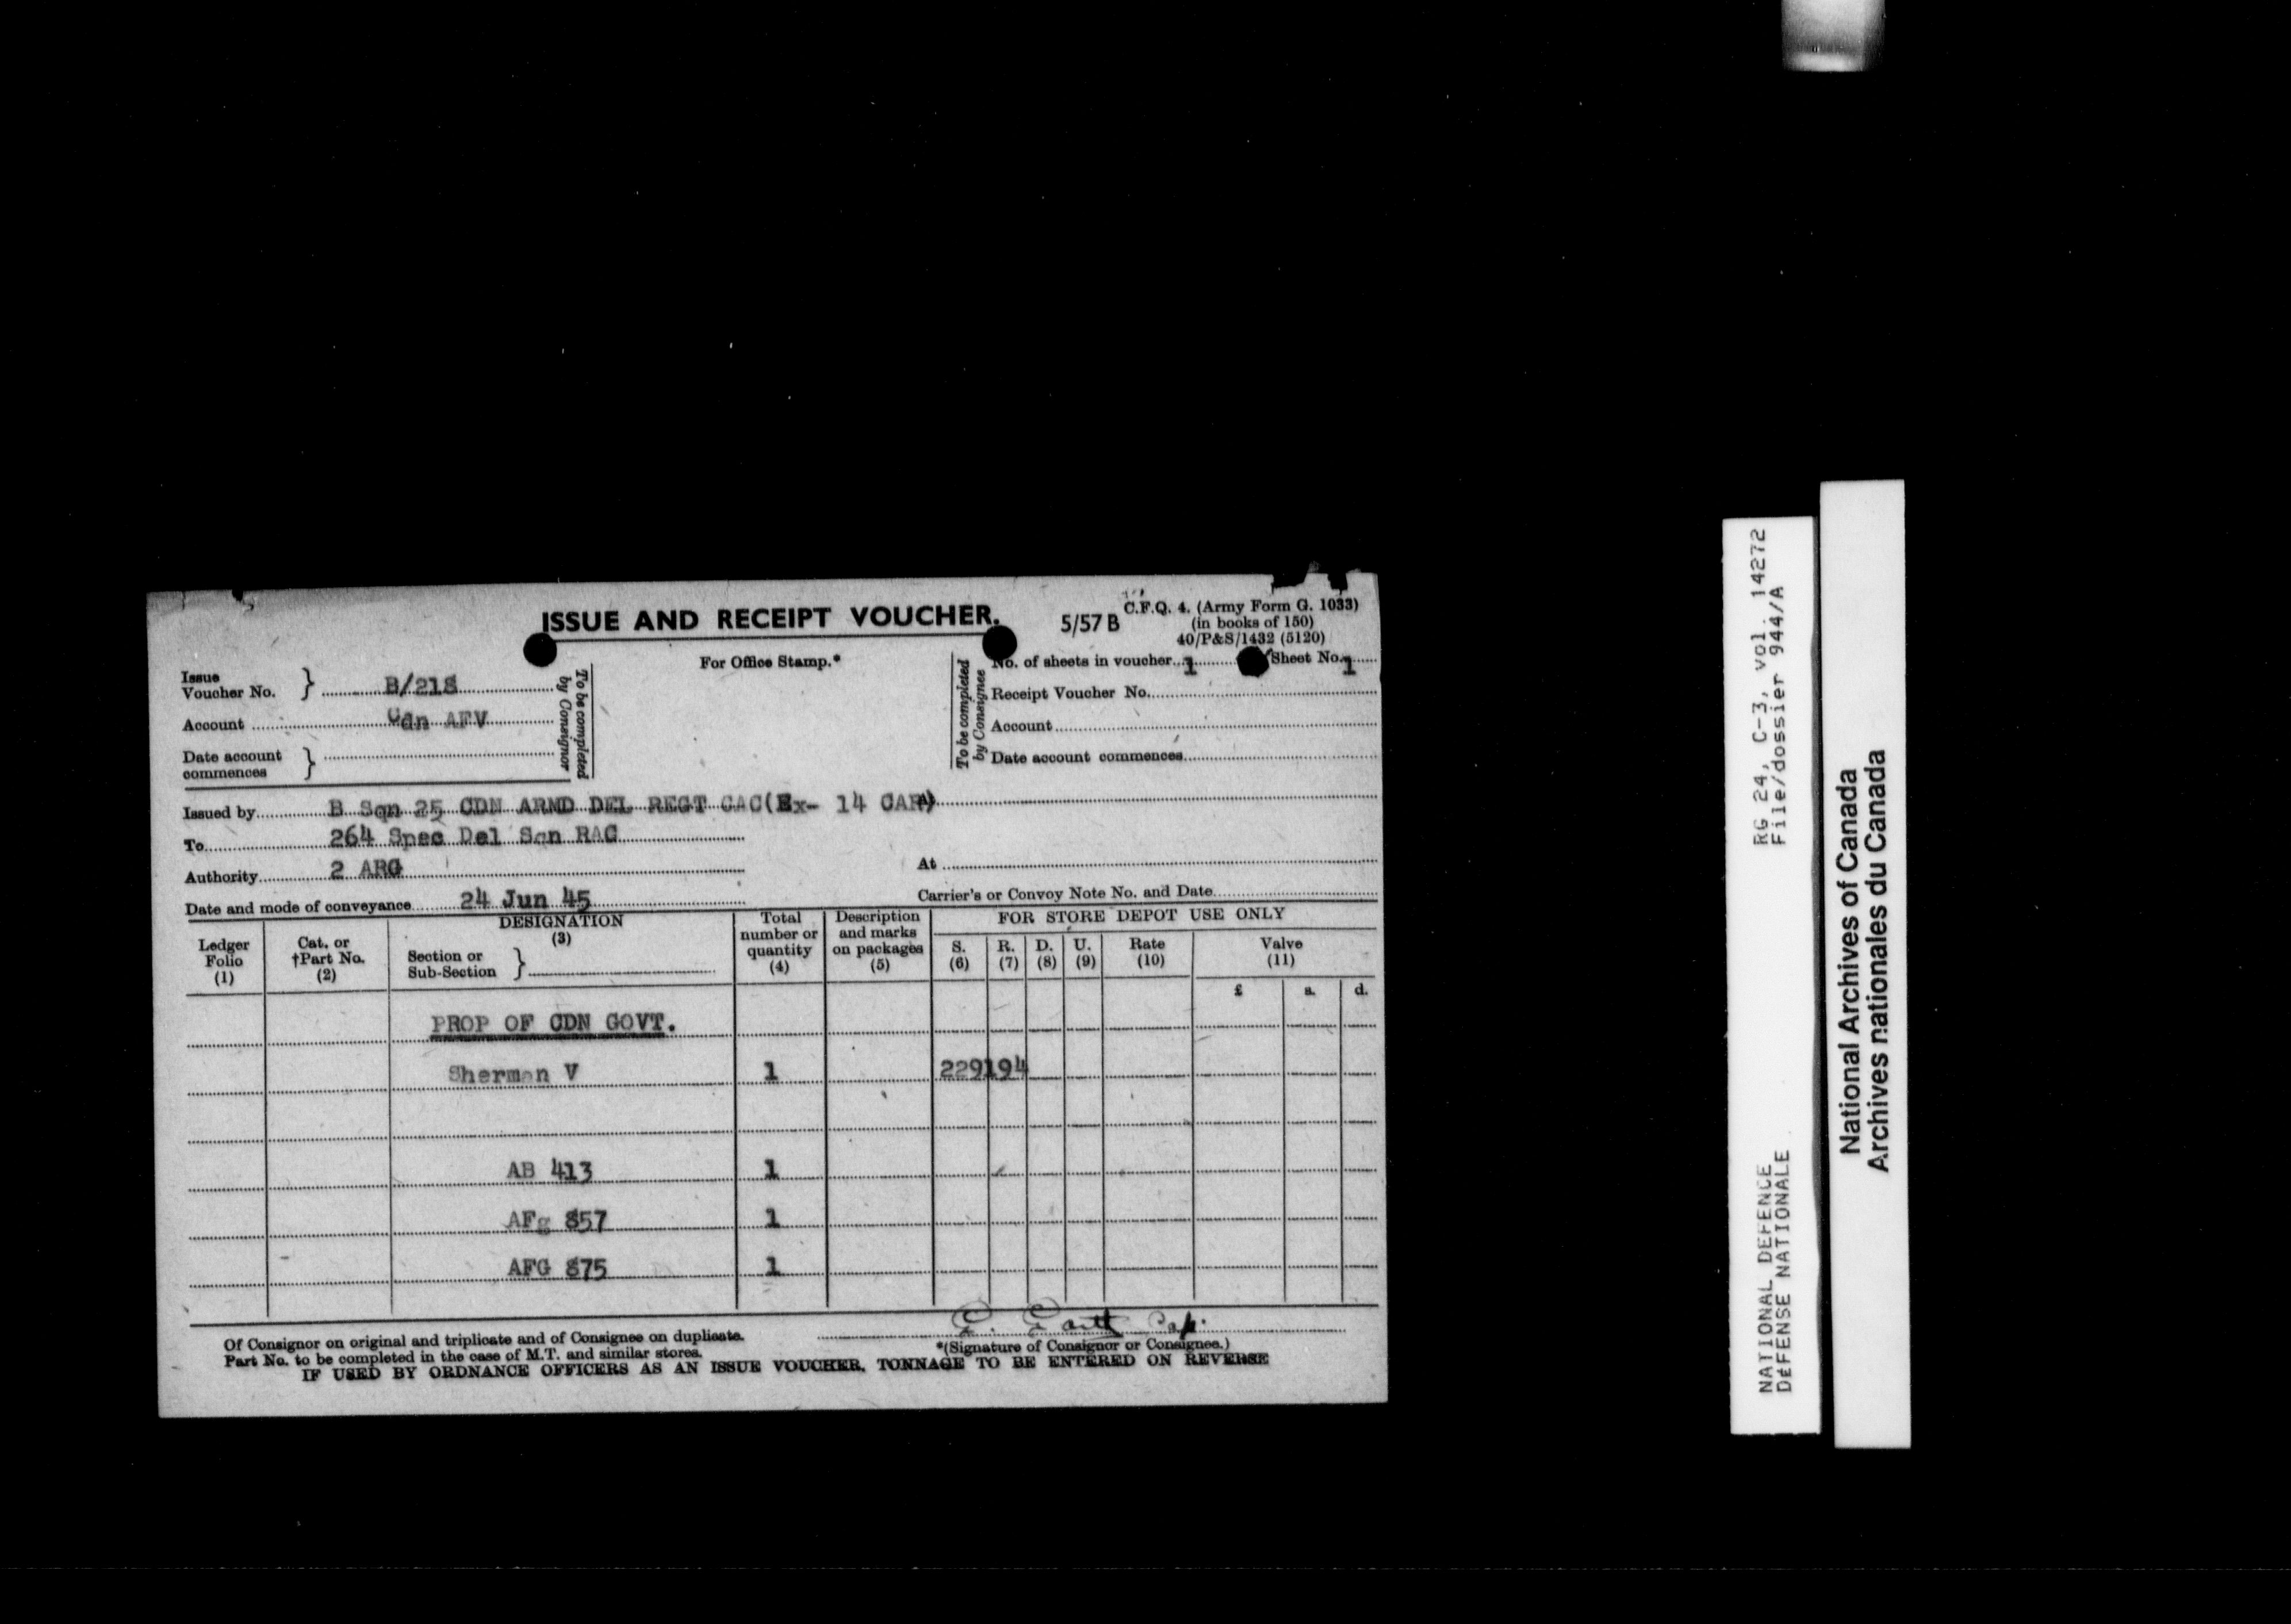 ISSUE AND RECEIPT VOUCHER.
5/57 B
C.F.Q. 4. (Army Form G. 1033)
(in books of 150)
40/P&S/1432 (5120)
Issue
Voucher No. } B/218
Account Cdn AFV
Date account
commences }
To be completed
by Consignor
For Office Stamp.*
To be completed
by Consignee
No. of sheets in voucher 1 Sheet No. 1
Receipt Voucher No.
Account
Date account commences
Issued by B Sqn 25 CDN ARMD DEL REGT CAC(Ex- 14 CAR)
To 264 Spec Del Sqn RAC
Authority 2 ARG
At
Date and mode of conveyance 24 Jun 45
Carrier's or Convoy Note No. and Date
Ledger
Folio
(1)
Cat. or
†Part No.
(2)
DESIGNATION
(3)
Section or
Sub-Section }
Total
number or
quantity
(4)
Description
and marks
on packages
(5)
FOR STORE DEPOT USE ONLY
S.
(6)
R.
(7)
D.
(8)
U.
(9)
Rate
(10)
Valve
(11)
£ s. d.
PROP OF CDN GOVT.
Sherman V 1 229194
AB 413 1
AFg 857 1
AFG 875 1
E. Cap.
Of Consignor on original and triplicate and of Consignee on duplicate.
*(Signature of Consignor or Consignee.)
Part No. to be completed in the case of M.T. and similar stores.
IF USED BY ORDNANCE OFFICERS AS AN ISSUE VOUCHER, TONNAGE TO BE ENTERED ON REVERSE
NATIONAL DEFENCE RG 24, C-3, vol. 14272
DéFENSE NATIONALE File/dossier 944/A
National Archives of Canada
Archives nationales du Canada